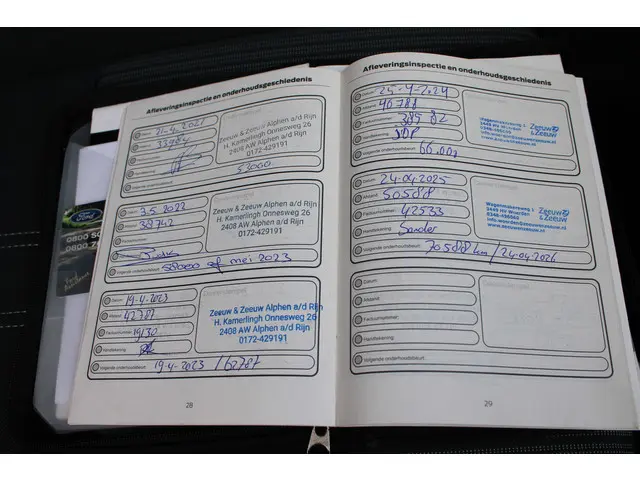 Afleveringsinspectie en onderhoudsgeschiedenis
Datum 21-4-2021
33984
53000
Zeeuw & Zeeuw Alphen a/d Rijn
H. Kamerlingh Onnesweg 26
2408 AW Alphen a/d Rijn
0172-429191
Datum 3.5 2022
38742
of mei 2023
Zeeuw & Zeeuw Alphen a/d Rijn
H. Kamerlingh Onnesweg 26
2408 AW Alphen a/d Rijn
0172-429191
Datum 19-4-2023
Afstand 42787
Factuurnummer 19130
Handtekening
Volgende onderhoudsbeurt 19-4-2023 / 62787
Zeeuw & Zeeuw Alphen a/d Rijn
H. Kamerlingh Onnesweg 26
2408 AW Alphen a/d Rijn
0172-429191
28
Ford
0800
Afleveringsinspectie en onderhoudsgeschiedenis
Datum 25-4-2024
Afstand 46788
Factuurnummer 389 82
Handtekening
Volgende onderhoudsbeurt 66.000
Zeeuw &
Zeeuw
Datum 24-04-2025
Afstand 50588
Factuurnummer 42533
Handtekening Sander
Volgende onderhoudsbeurt 70588 km / 24-04-2026
Zeeuw &
Zeeuw
Datum
Afstand
Factuurnummer
Handtekening
Volgende onderhoudsbeurt
29